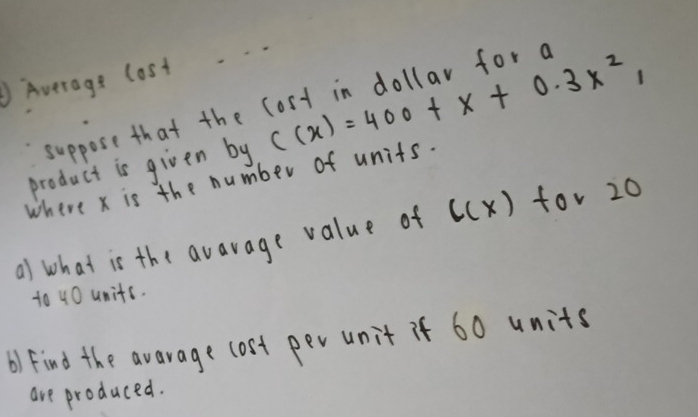 Average Cost ...
suppose that the Cost in dollar for a
product is given by C(x) = 400 + x + 0.3x²,
where x is the number of units.
a) What is the avavage value of C(x) for 20
to 40 units.
b) Find the avavage cost per unit if 60 units
are produced.